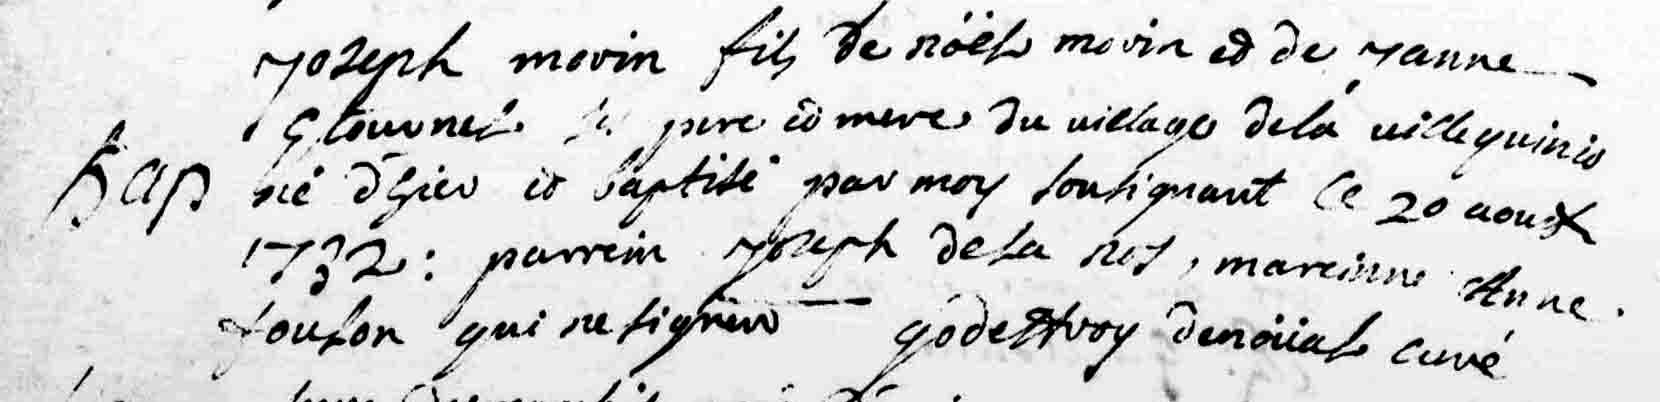 joseph morin fils de nöel morin et de janne
ses pere et mere du village de la villequinio
Bap né d'hier et baptisé par moy sousignant ce 20 aoust
1732: parrein joseph de la noë, mareinne Anne
qui ne signent godeffroy denöüal curé